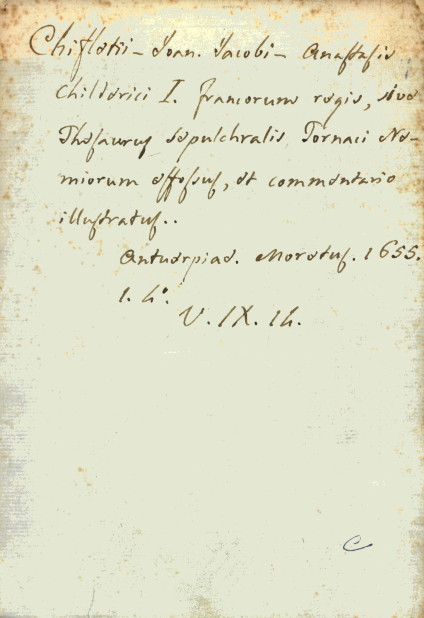 Chifletii - Joan. Jacobi - Anastasis
Childerici I. francorum regis, sive
Thesaurus sepulchralis Tornaci Ne-
rviorum effossus, et commentario
illustratus..
Antuerpiae. Moretus. 1655.
1. 4°.
V. IX. 14.
C